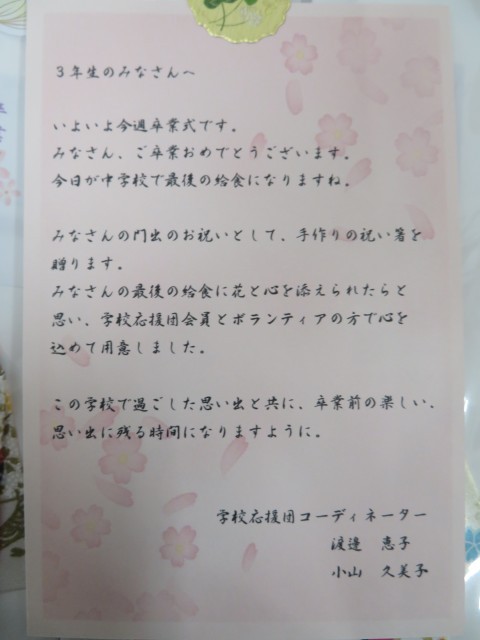 3年生のみなさんへ
いよいよ今週卒業式です。
みなさん、ご卒業おめでとうございます。
今日が中学校で最後の給食になりますね。
みなさんの門出のお祝いとして、手作りの祝い箸を
贈ります。
みなさんの最後の給食に花と心を添えられたらと
思い、学校応援団会員とボランティアの方で心を
込めて用意しました。
この学校で過ごした思い出と共に、卒業前の楽しい、
思い出に残る時間になりますように。
学校応援団コーディネーター
渡邊 恵子
小山 久美子